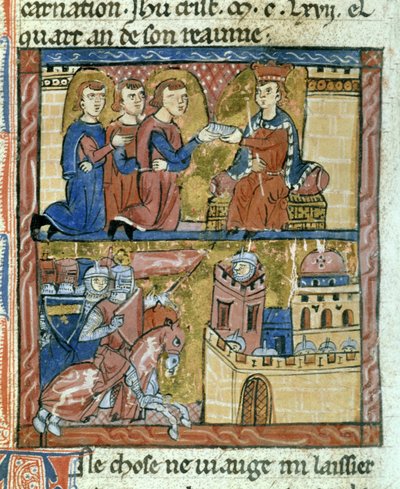 carnation. Jhu crist. M. C. lxvij. el
quart an de son reaume.
ne chose ne laissier